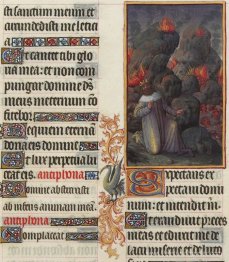 sti saccum meum et
circumdedisti me leticia
Ut cantet tibi glo
ria mea: et non com
pungar domine ds
meus in eternum cō
fitebor tibi
Requiem eternā
dona eis domine
Et lux perpetua lu
ceat eis. antiphona
Domine abstraxisti
ab inferis animam meā.
antiphona
Complaceat
Expectans ex
pectaui domi
num: et intendit m
Et exaudiuit preces
meas et eduxit me de
lacu miserie et de luto